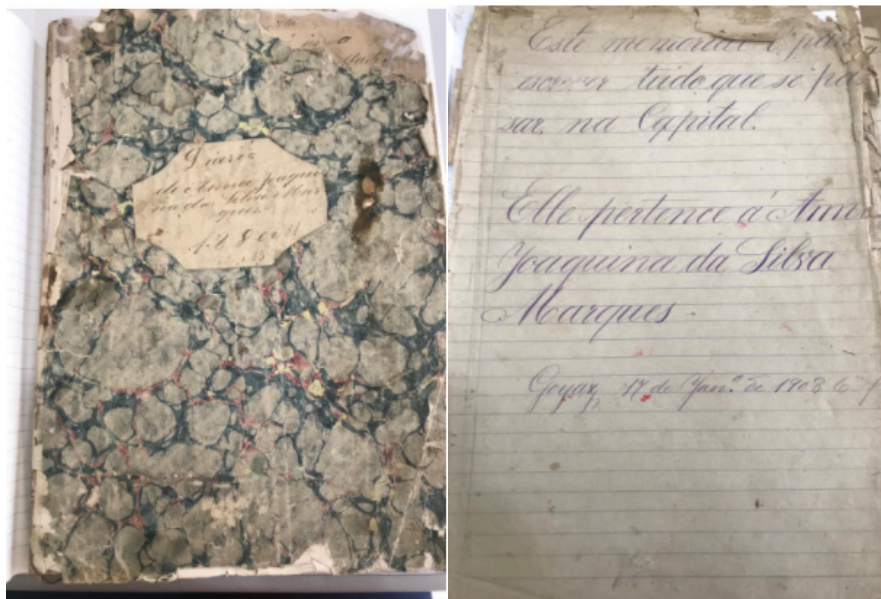 Diario
de Anna Joaqui
na da Silva Mar
ques.
Este memorial é pa
escrever tudo que se pas
sar na Capital.
Elle pertence á Ann
Joaquina da Silva
Marques.
Goyaz, 17 de Jan.º de 1908